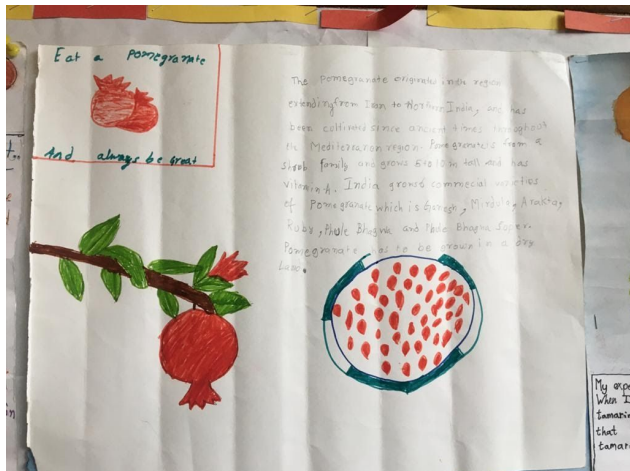 Eat a Pomegranate
And always be great
The Pomegranate originates in the region
extending from Iran to Northern India, and has
been cultivated since ancient times throughout
the Mediterranean region. Pomegranate is from a
shrub family and grows 5 to 10 m tall and has
vitamin A. India grows commecial varieties
of Pomegranate which is Ganesh, Mridula, Arakta,
Ruby, Phule Bhagwa and Phule Bhagwa Super.
Pomegranate has to be grown in a dry
Land.
My expe
When I
tamarin
that
tamar